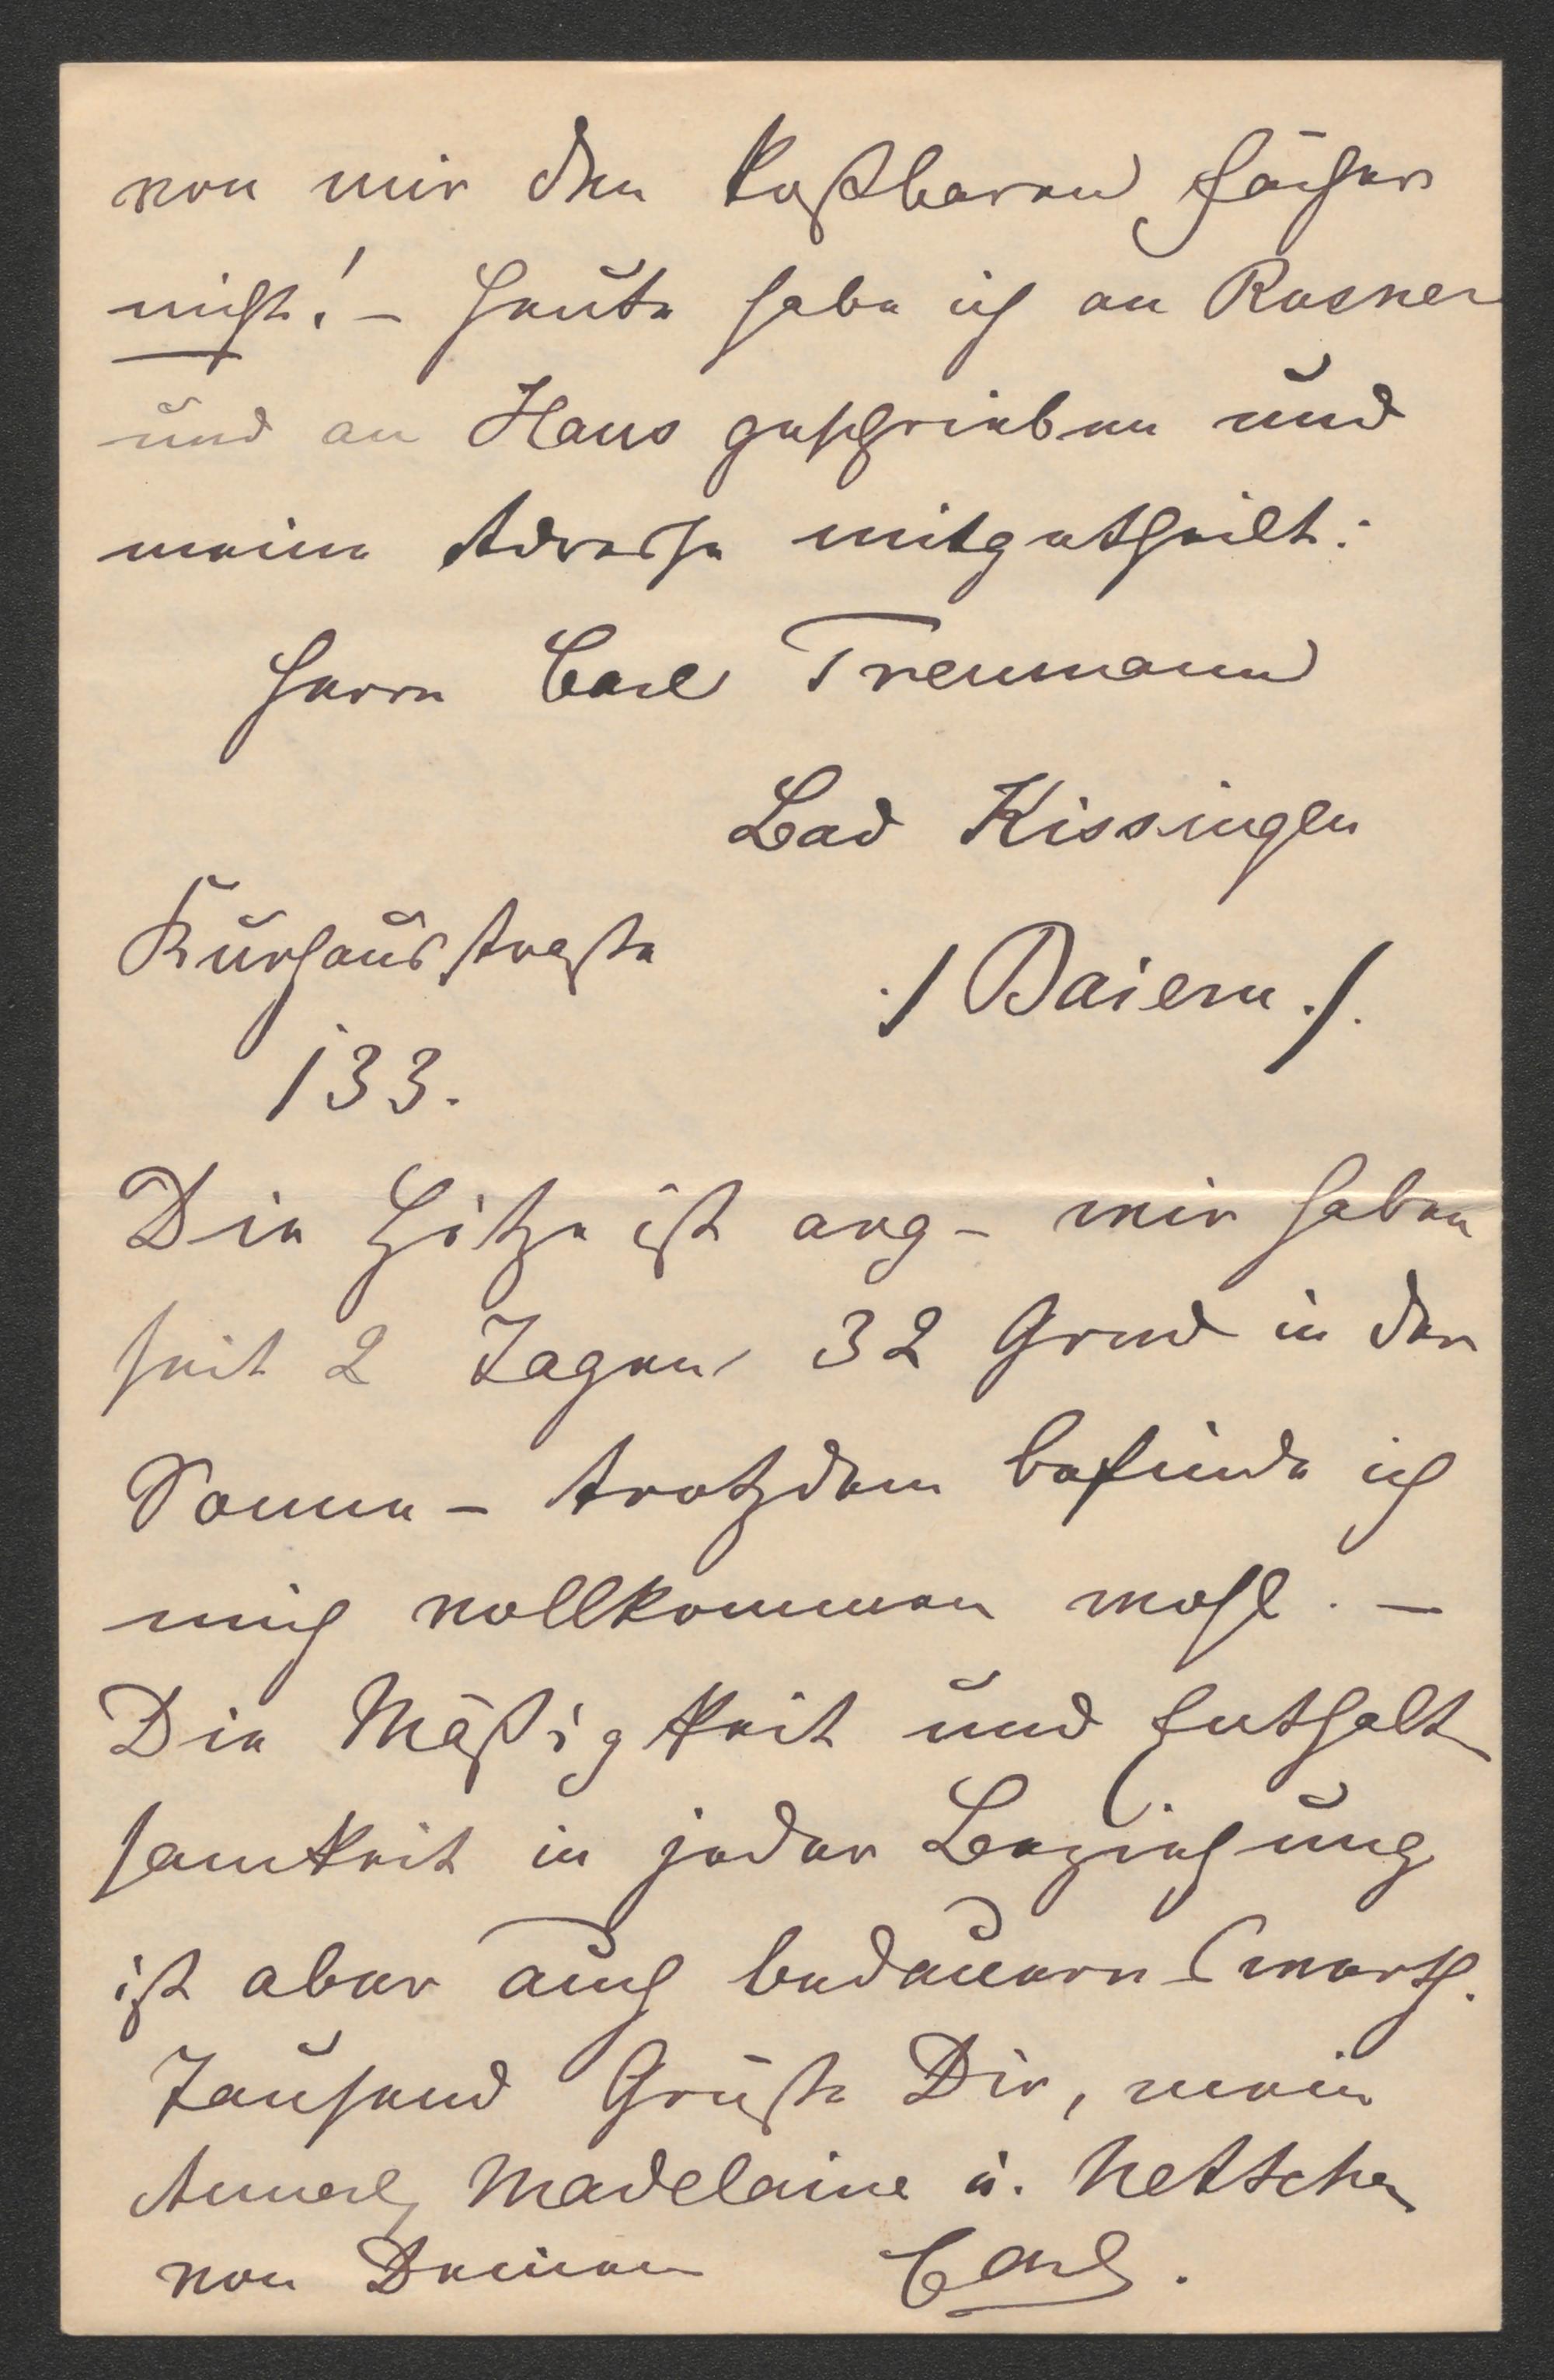 von mir den kostbaren Fächer
nicht! – Heute habe ich an Rosner
und an Hans geschrieben und
meine Adresse mitgetheilt:
Herrn Carl Treumann
Bad Kissingen
Kurhausstraße
./ Baiern ./.
133.
Die Hitze ist arg – wir haben
seit 2 Tagen 32 Grad in der
Sonne – trotzdem befinde ich
mich vollkommen wohl. –
Die Mäßigkeit und Enthalt
samkeit in jeder Beziehung
ist aber auch bedauernswerth.
Tausend Grüße Dir, mein
Annerl, Madelaine u. Nettchen
von Deinem Carl.